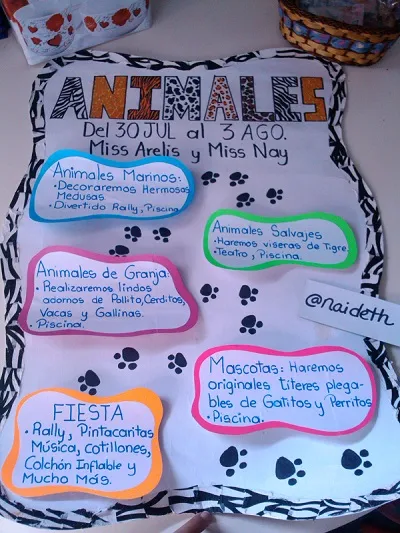 ANIMALES
Del 30 JUL al 3 AGO.
Miss Arelis y Miss Nay
Animales Marinos:
• Decoraremos Hermosas
Medusas.
• Divertido Rally, Piscina
Animales Salvajes
• Haremos viseras de Tigre.
• Teatro, Piscina.
Animales de Granja:
• Realizaremos lindos
adornos de Pollito, Cerditos,
Vacas y Gallinas.
• Piscina.
@naideth
Mascotas: Haremos
originales títeres plega-
bles de Gatitos y Perritos
• Piscina.
FIESTA
• Rally, Pintacaritas
Música, Cotillones,
Colchón Inflable y
Mucho Más.